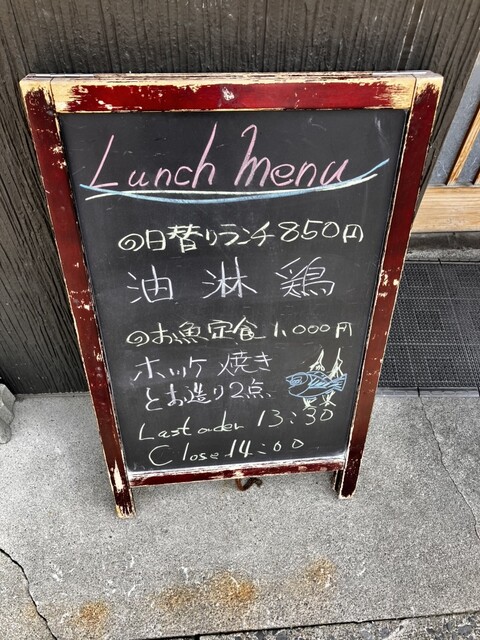 Lunch menu
日替りランチ 850円
油淋鶏
お魚定食 1,000円
ホッケ焼き
とお造り2点、
Last order 13:30
Close 14:00